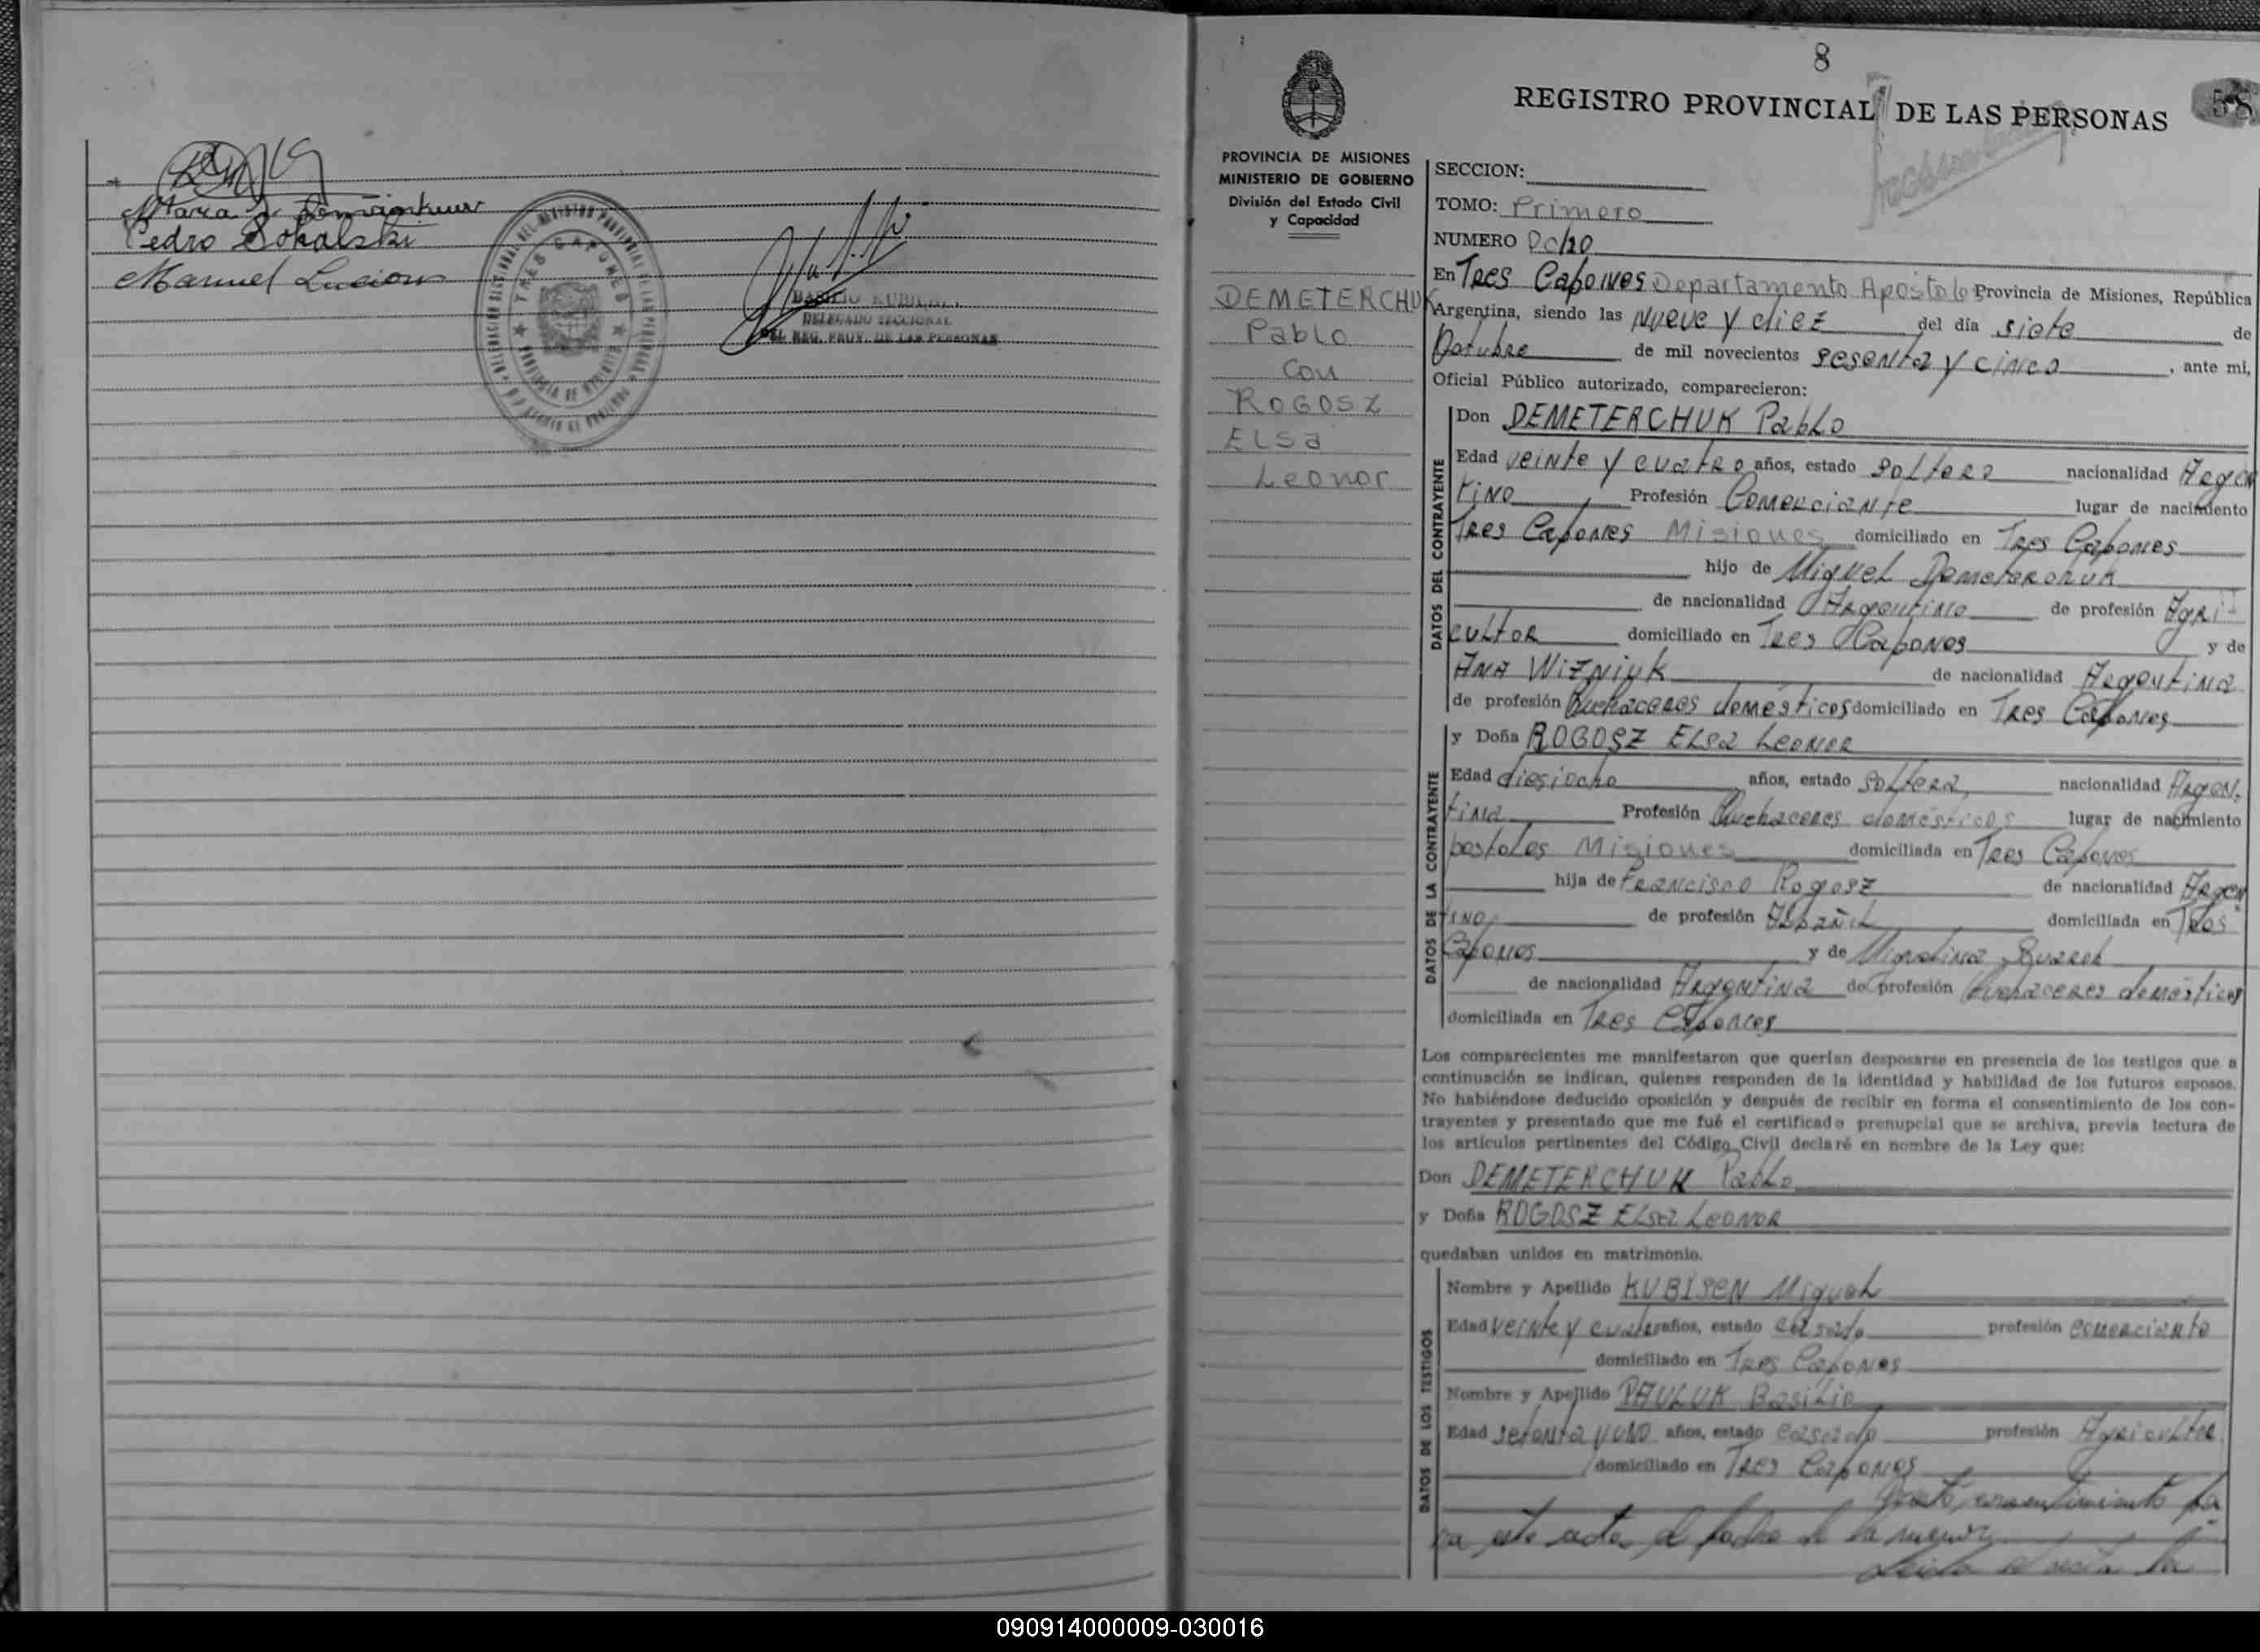 Pedro Sokalski
Manuel
TRES CAPONES
DELEGADO SECCIONAL
DEL REG. PROV. DE LAS PERSONAS
8
REGISTRO PROVINCIAL DE LAS PERSONAS
58
PROVINCIA DE MISIONES
MINISTERIO DE GOBIERNO
División del Estado Civil
y Capacidad
DEMETERCHUK
Pablo
Con
ROGOSZ
ELSa
Leonor
SECCION:
TOMO: Primero
NUMERO Ocho
En Tres Capones Departamento Apostolo Provincia de Misiones, República
Argentina, siendo las Nueve y diez del día siete de
Octubre de mil novecientos sesenta y cinco, ante mi,
Oficial Público autorizado, comparecieron:
DATOS DEL CONTRAYENTE
Don DEMETERCHUK Pablo
Edad veinte y cuatro años, estado soltero nacionalidad Argen
tino Profesión Comerciante lugar de nacimiento
Tres Capones Misiones domiciliado en Tres Capones
hijo de Miguel Demeterchuk
de nacionalidad Argentino de profesión Agri-
cultor domiciliado en Tres Capones y de
Ana Wizniuk de nacionalidad Argentina
de profesión Quehaceres domésticos domiciliado en Tres Capones
DATOS DE LA CONTRAYENTE
y Doña ROGOSZ Elsa Leonor
Edad diesiocho años, estado soltera, nacionalidad Argen-
tina Profesión Quehaceres domésticos lugar de nacimiento
postoles Misiones domiciliada en Tres Capones
hija de Francisco Rogosz de nacionalidad Argen
tino, de profesión Albañil domiciliada en Tres
Capones y de
de nacionalidad Argentina de profesión Quehaceres domésticos
domiciliada en Tres Capones
Los comparecientes me manifestaron que querían desposarse en presencia de los testigos que a
continuación se indican, quienes responden de la identidad y habilidad de los futuros esposos.
No habiéndose deducido oposición y después de recibir en forma el consentimiento de los con-
trayentes y presentado que me fué el certificado prenupcial que se archiva, previa lectura de
los artículos pertinentes del Código Civil declaré en nombre de la Ley que:
Don DEMETERCHUK Pablo
y Doña ROGOSZ Elsa Leonor
quedaban unidos en matrimonio.
DATOS DE LOS TESTIGOS
Nombre y Apellido KUBISEN Miguel
Edad veinte y cuatro años, estado casado profesión comerciante
domiciliado en Tres Capones
Nombre y Apellido PAULUK Basilio
Edad setenta y uno años, estado casado profesión Agricultor
domiciliado en Tres Capones
Prestó consentimiento pa
ra este acto, el padre de la menor
Leida el acta la
090914000009-030016